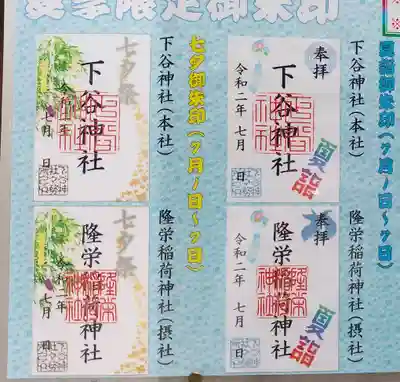 夏季限定御朱印
夏詣御朱印(7月1日~7日)
下谷神社(本社)
奉拝
下谷神社
令和二年 七月 日
夏詣
隆栄稲荷神社(摂社)
奉拝
隆栄稲荷神社
令和二年 七月 日
夏詣
七夕御朱印(7月1日~7日)
下谷神社(本社)
七夕祭
下谷神社
令和二年
七月 日
隆栄稲荷神社(摂社)
七夕祭
隆栄稲荷神社
令和二年
七月 日